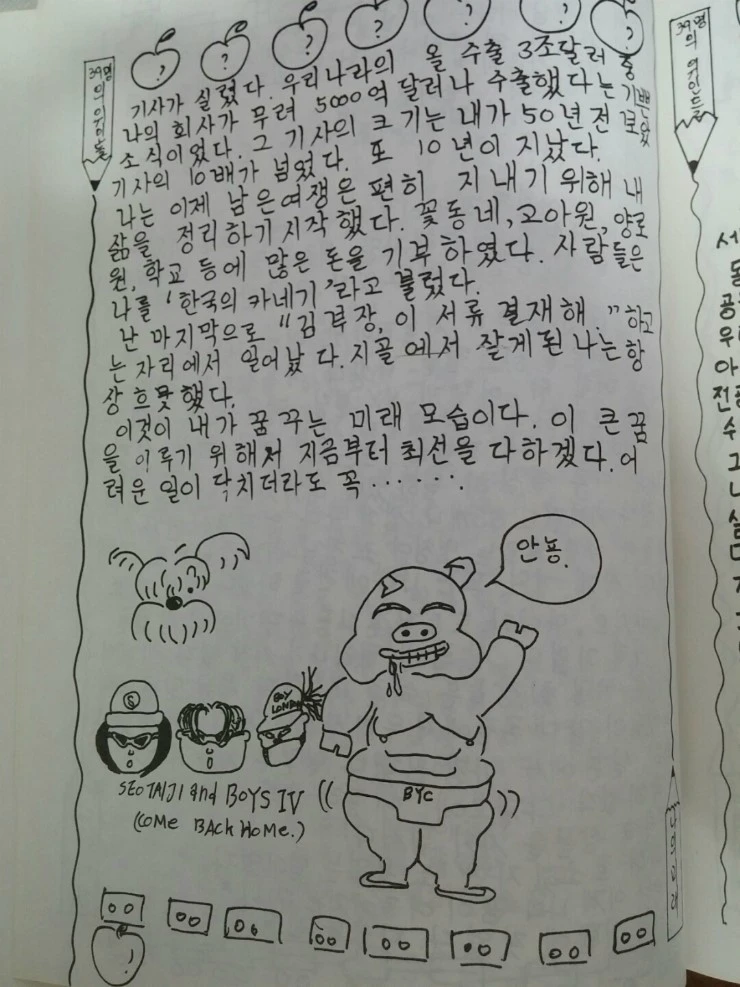 ? ? ? ? ? ? ?
39명의 여인들
39명의 여인들
기사가 실렸다. 우리나라의 올 수출 3조달러 중
나의 회사가 무려 5000억 달러나 수출했다는 기쁜
소식이었다. 그 기사의 크기는 내가 50년전 보았
기사의 10배가 넘었다. 또 10년이 지났다.
나는 이제 남은여생은 편히 지내기 위해 내
삶을 정리하기 시작했다. 꽃동네, 고아원, 양로
원, 학교 등에 많은 돈을 기부하였다. 사람들은
나를 '한국의 카네기'라고 불렀다.
난 마지막으로 "김부장, 이 서류 결재해." 하고
는 자리에서 일어났다. 지골에서 잘게된 나는 항
상 흐뭇했다.
이것이 내가 꿈꾸는 미래 모습이다. 이 큰 꿈
을 이루기 위해서 지금부터 최선을 다하겠다. 어
려운 일이 닥치더라도 꼭.......
안뇽.
S
BOY LONDON
SEO TAIJI and BOYS IV
(COME BACK HOME.)
BYC
나의 미래